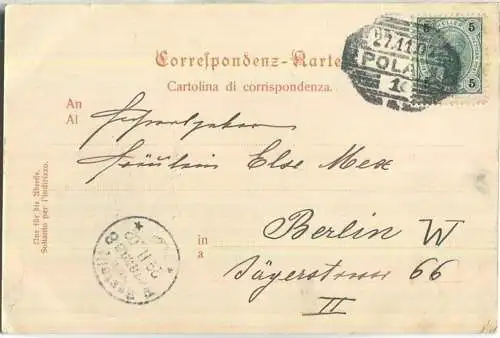 Correspondenz-Karte
Cartolina di corrispondenza.
27.11.0
POLA
10
5 5
5 5
An
Al
Hochwohlgeboren
Fräulein Else Mex
in Berlin W
a Jägerstrasse 66
II
Nur für die Adresse.
Soltanto per l'indirizzo.
Bestellt